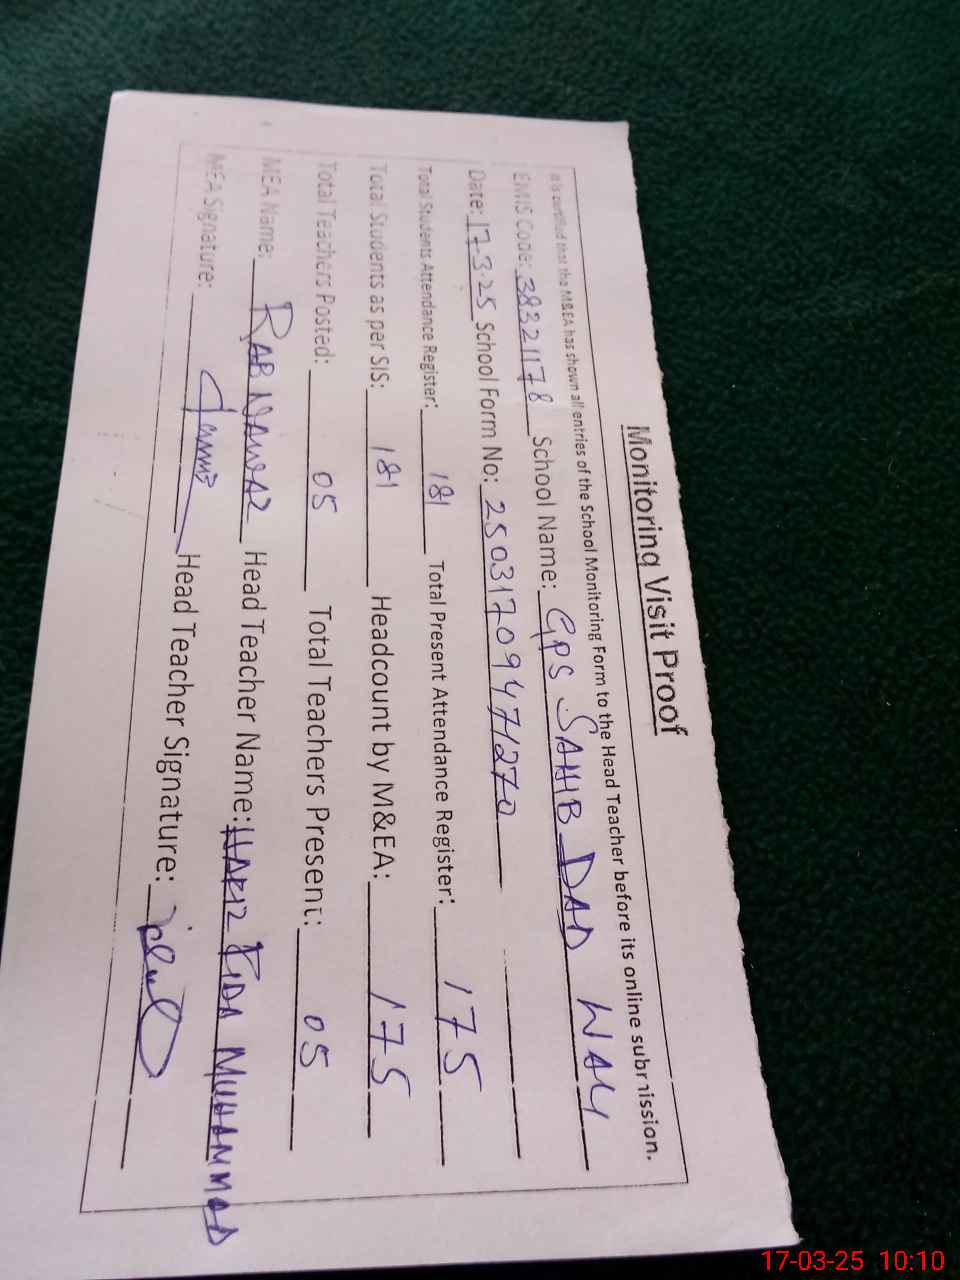 Monitoring Visit Proof
It is certified that the M&EA has shown all entries of the School Monitoring Form to the Head Teacher before its online submission.
EMIS Code: 38321178 School Name: GPS SAHIB DAD WALI
Date: 17-3-25 School Form No: 25031709471270
Total Students Attendance Register: 181 Total Present Attendance Register: 175
Total Students as per SIS: 181 Headcount by M&EA: 175
Total Teachers Posted: 05 Total Teachers Present: 05
MEA Name: RAB NAWAZ Head Teacher Name: HAFIZ FIDA MUHAMMAD
MEA Signature: Head Teacher Signature:
17-03-25 10:10